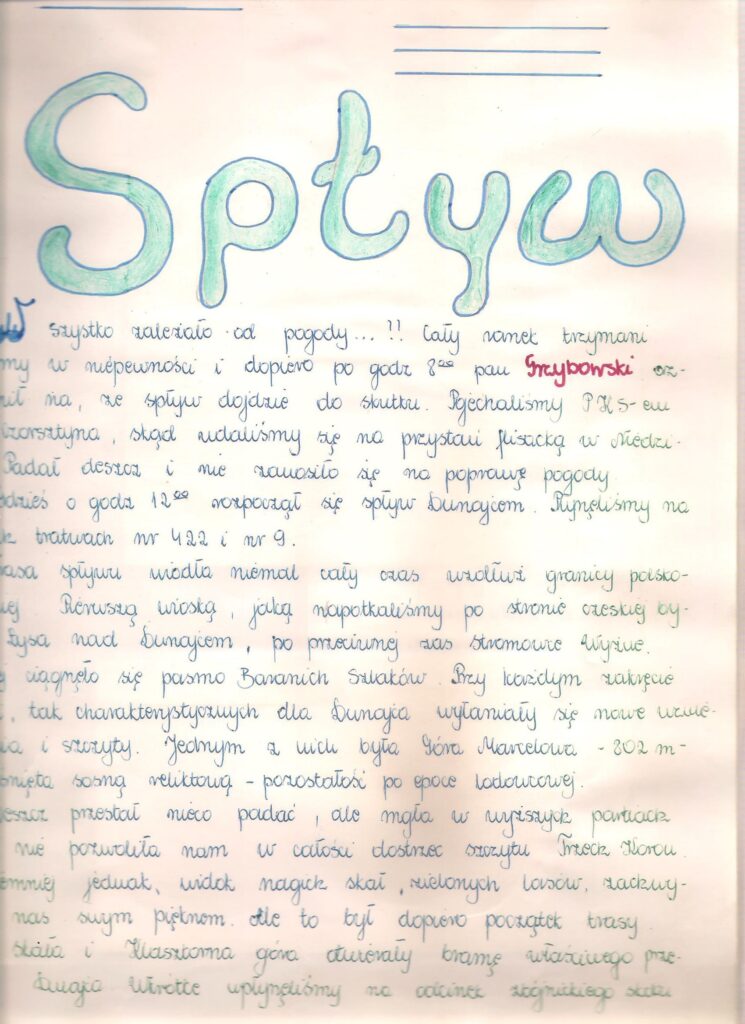 Spływ
W szystko zależało od pogody...!! Cały ranek trzymani
my w niepewności i dopiero po godz 8⁰⁰ pan Grzybowski oz-
nił na, że spływ dojdzie do skutku. Pojechaliśmy PKS-em
zorsztyna, skąd udaliśmy się na przystań flisacką w Niedzi-
Padał deszcz i nie zanosiło się na poprawę pogody
dzieś o godz 12⁰⁰ rozpoczął się spływ Dunajcem. Płynęliśmy na
ch tratwach nr 422 i nr 9.
rasa spływu wiodła niemal cały czas wzdłuż granicy polsko-
iej Pierwszą wioską, jaką napotkaliśmy po stronie czeskiej by-
Łysa nad Dunajcem, po przeciwnej zaś Stromowce Wyżne.
j ciągnęło się pasmo Baranich Szlaków. Przy każdym zakręcie
, tak charakterystycznych dla Dunajca wyłaniały się nowe wznie-
ia i szczyty. Jednym z nich była Góra Marcelowa - 802 m -
śnięta sosną reliktową - pozostałość po epoce lodowcowej.
eszcz przestał nieco padać, ale mgła w wyższych partiach
nie pozwoliła nam w całości dostrzec szczytu Trzech Koron
emniej jednak, widok nagich skał, zielonych lasów, zachwy-
nas swym pięknem. Ale to był dopiero początek trasy
skała i Klasztorna góra otwierały bramę właściwego prze-
Dunajca Wkrótce wpłynęliśmy na odcinek zbójnickiego skoku